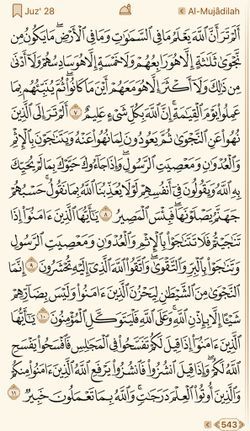 Juz' 28
Al-Mujādilah
أَلَمْ تَرَ أَنَّ ٱللَّهَ يَعْلَمُ مَا فِى ٱلسَّمَٰوَٰتِ وَمَا فِى ٱلْأَرْضِ ۖ مَا يَكُونُ مِن
نَّجْوَىٰ ثَلَٰثَةٍ إِلَّا هُوَ رَابِعُهُمْ وَلَا خَمْسَةٍ إِلَّا هُوَ سَادِسُهُمْ وَلَآ أَدْنَىٰ
مِن ذَٰلِكَ وَلَآ أَكْثَرَ إِلَّا هُوَ مَعَهُمْ أَيْنَ مَا كَانُوا۟ ۖ ثُمَّ يُنَبِّئُهُم بِمَا
عَمِلُوا۟ يَوْمَ ٱلْقِيَٰمَةِ ۚ إِنَّ ٱللَّهَ بِكُلِّ شَىْءٍ عَلِيمٌ ٧ أَلَمْ تَرَ إِلَى ٱلَّذِينَ
نُهُوا۟ عَنِ ٱلنَّجْوَىٰ ثُمَّ يَعُودُونَ لِمَا نُهُوا۟ عَنْهُ وَيَتَنَٰجَوْنَ بِٱلْإِثْمِ
وَٱلْعُدْوَٰنِ وَمَعْصِيَتِ ٱلرَّسُولِ وَإِذَا جَآءُوكَ حَيَّوْكَ بِمَا لَمْ يُحَيِّكَ
بِهِ ٱللَّهُ وَيَقُولُونَ فِىٓ أَنفُسِهِمْ لَوْلَا يُعَذِّبُنَا ٱللَّهُ بِمَا نَقُولُ ۚ حَسْبُهُمْ
جَهَنَّمُ يَصْلَوْنَهَا ۖ فَبِئْسَ ٱلْمَصِيرُ ٨ يَٰٓأَيُّهَا ٱلَّذِينَ ءَامَنُوٓا۟ إِذَا
تَنَٰجَيْتُمْ فَلَا تَتَنَٰجَوْا۟ بِٱلْإِثْمِ وَٱلْعُدْوَٰنِ وَمَعْصِيَتِ ٱلرَّسُولِ
وَتَنَٰجَوْا۟ بِٱلْبِرِّ وَٱلتَّقْوَىٰ ۖ وَٱتَّقُوا۟ ٱللَّهَ ٱلَّذِىٓ إِلَيْهِ تُحْشَرُونَ ٩ إِنَّمَا
ٱلنَّجْوَىٰ مِنَ ٱلشَّيْطَٰنِ لِيَحْزُنَ ٱلَّذِينَ ءَامَنُوا۟ وَلَيْسَ بِضَآرِّهِمْ
شَيْـًٔا إِلَّا بِإِذْنِ ٱللَّهِ ۚ وَعَلَى ٱللَّهِ فَلْيَتَوَكَّلِ ٱلْمُؤْمِنُونَ ١٠ يَٰٓأَيُّهَا
ٱلَّذِينَ ءَامَنُوٓا۟ إِذَا قِيلَ لَكُمْ تَفَسَّحُوا۟ فِى ٱلْمَجَٰلِسِ فَٱفْسَحُوا۟ يَفْسَحِ
ٱللَّهُ لَكُمْ ۖ وَإِذَا قِيلَ ٱنشُزُوا۟ فَٱنشُزُوا۟ يَرْفَعِ ٱللَّهُ ٱلَّذِينَ ءَامَنُوا۟ مِنكُمْ
وَٱلَّذِينَ أُوتُوا۟ ٱلْعِلْمَ دَرَجَٰتٍ ۚ وَٱللَّهُ بِمَا تَعْمَلُونَ خَبِيرٌ ١١
543